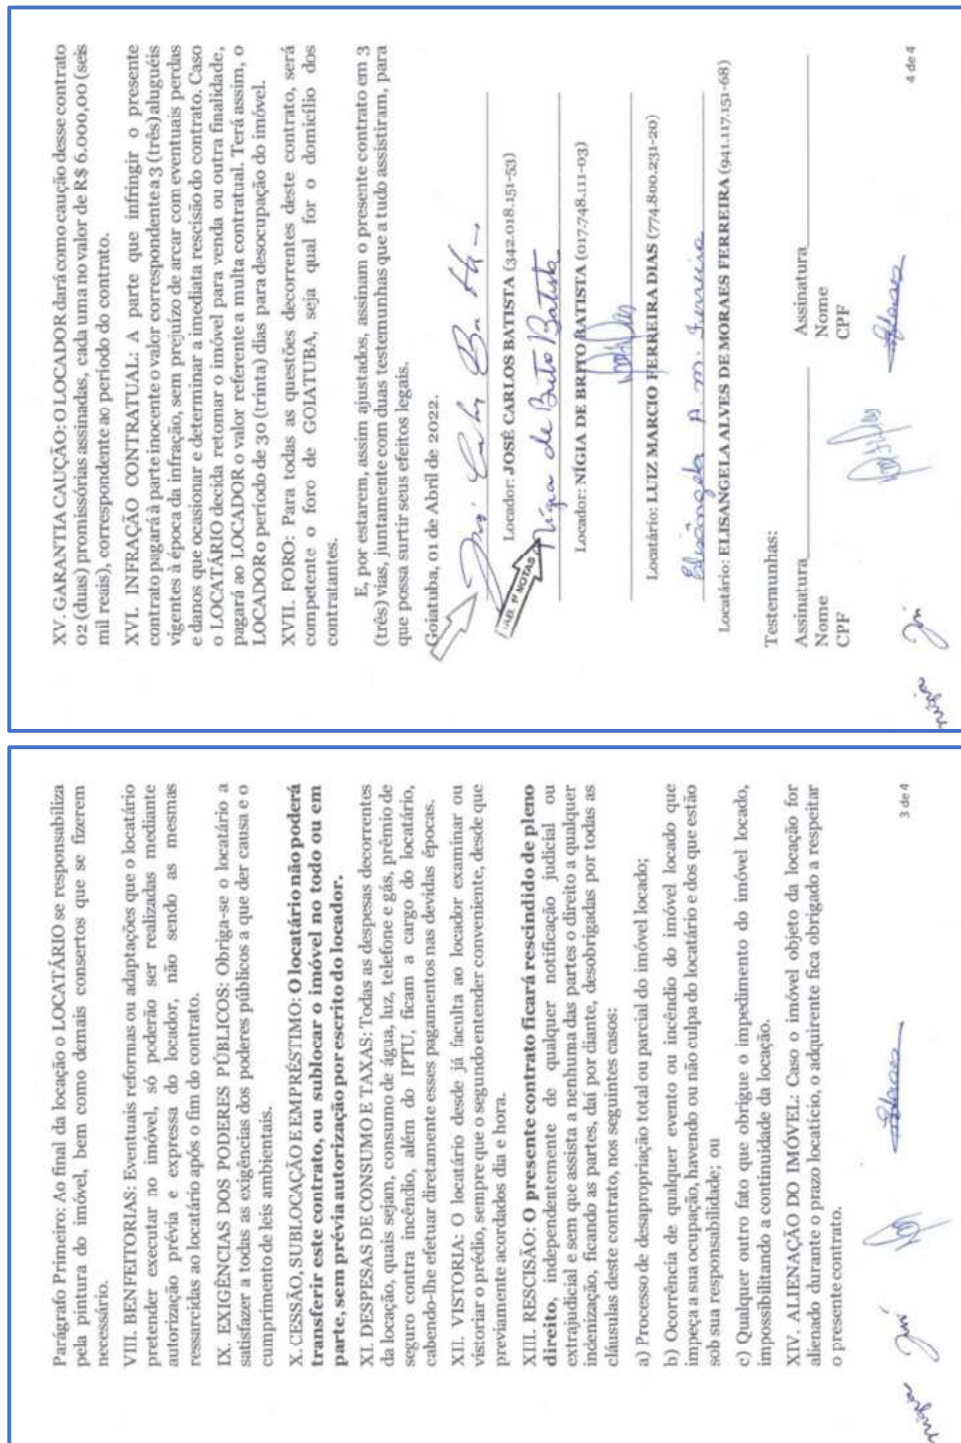 Parágrafo Primeiro: Ao final da locação o LOCATÁRIO se responsabiliza
pela pintura do imóvel, bem como demais consertos que se fizerem
necessário.
VIII. BENFEITORIAS: Eventuais reformas ou adaptações que o locatário
pretender executar no imóvel, só poderão ser realizadas mediante
autorização prévia e expressa do locador, não sendo as mesmas
ressarcidas ao locatário após o fim do contrato.
IX. EXIGÊNCIAS DOS PODERES PÚBLICOS: Obriga-se o locatário a
satisfazer a todas as exigências dos poderes públicos a que der causa e o
cumprimento de leis ambientais.
X. CESSÃO, SUBLOCAÇÃO E EMPRÉSTIMO: O locatário não poderá
transferir este contrato, ou sublocar o imóvel no todo ou em
parte, sem prévia autorização por escrito do locador.
XI. DESPESAS DE CONSUMO E TAXAS: Todas as despesas decorrentes
da locação, quais sejam, consumo de água, luz, telefone e gás, prêmio de
seguro contra incêndio, além do IPTU, ficam a cargo do locatário,
cabendo-lhe efetuar diretamente esses pagamentos nas devidas épocas.
XII. VISTORIA: O locatário desde já faculta ao locador examinar ou
vistoriar o prédio, sempre que o segundo entender conveniente, desde que
previamente acordados dia e hora.
XIII. RESCISÃO: O presente contrato ficará rescindido de pleno
direito, independentemente de qualquer notificação judicial ou
extrajudicial e sem que assista a nenhuma das partes o direito a qualquer
indenização, ficando as partes, daí por diante, desobrigadas por todas as
cláusulas deste contrato, nos seguintes casos:
a) Processo de desapropriação total ou parcial do imóvel locado;
b) Ocorrência de qualquer evento ou incêndio do imóvel locado que
impeça a sua ocupação, havendo ou não culpa do locatário e dos que estão
sob sua responsabilidade; ou
c) Qualquer outro fato que obrigue o impedimento do imóvel locado,
impossibilitando a continuidade da locação.
XIV. ALIENAÇÃO DO IMÓVEL: Caso o imóvel objeto da locação for
alienado durante o prazo locatício, o adquirente fica obrigado a respeitar
o presente contrato.
3 de 4
XV. GARANTIA CAUÇÃO: O LOCADOR dará como caução desse contrato
02 (duas) promissórias assinadas, cada uma no valor de R$ 6.000,00 (seis
mil reais), correspondente ao período do contrato.
XVI. INFRAÇÃO CONTRATUAL: A parte que infringir o presente
contrato pagará à parte inocente o valor correspondente a 3 (três) aluguéis
vigentes à época da infração, sem prejuízo de arcar com eventuais perdas
e danos que ocasionar e determinar a imediata rescisão do contrato. Caso
o LOCATÁRIO decida retomar o imóvel para venda ou outra finalidade,
pagará ao LOCADOR o valor referente a multa contratual. Terá assim, o
LOCADOR o período de 30 (trinta) dias para desocupação do imóvel.
XVII. FORO: Para todas as questões decorrentes deste contrato, será
competente o foro de GOIATUBA, seja qual for o domicílio dos
contratantes.
E, por estarem, assim ajustados, assinam o presente contrato em 3
(três) vias, juntamente com duas testemunhas que a tudo assistiram, para
que possa surtir seus efeitos legais.
Goiatuba, 01 de Abril de 2022.
Locador: JOSÉ CARLOS BATISTA (342.018.151-53)
Nígia de Brito Batista
Locador: NÍGIA DE BRITO BATISTA (017.748.111-03)
Locatário: LUIZ MARCIO FERREIRA DIAS (774.800.231-20)
Elisângela A. M. Ferreira
Locatário: ELISANGELA ALVES DE MORAES FERREIRA (941.117.151-68)
Testemunhas:
Assinatura Assinatura
Nome Nome
CPF CPF
4 de 4